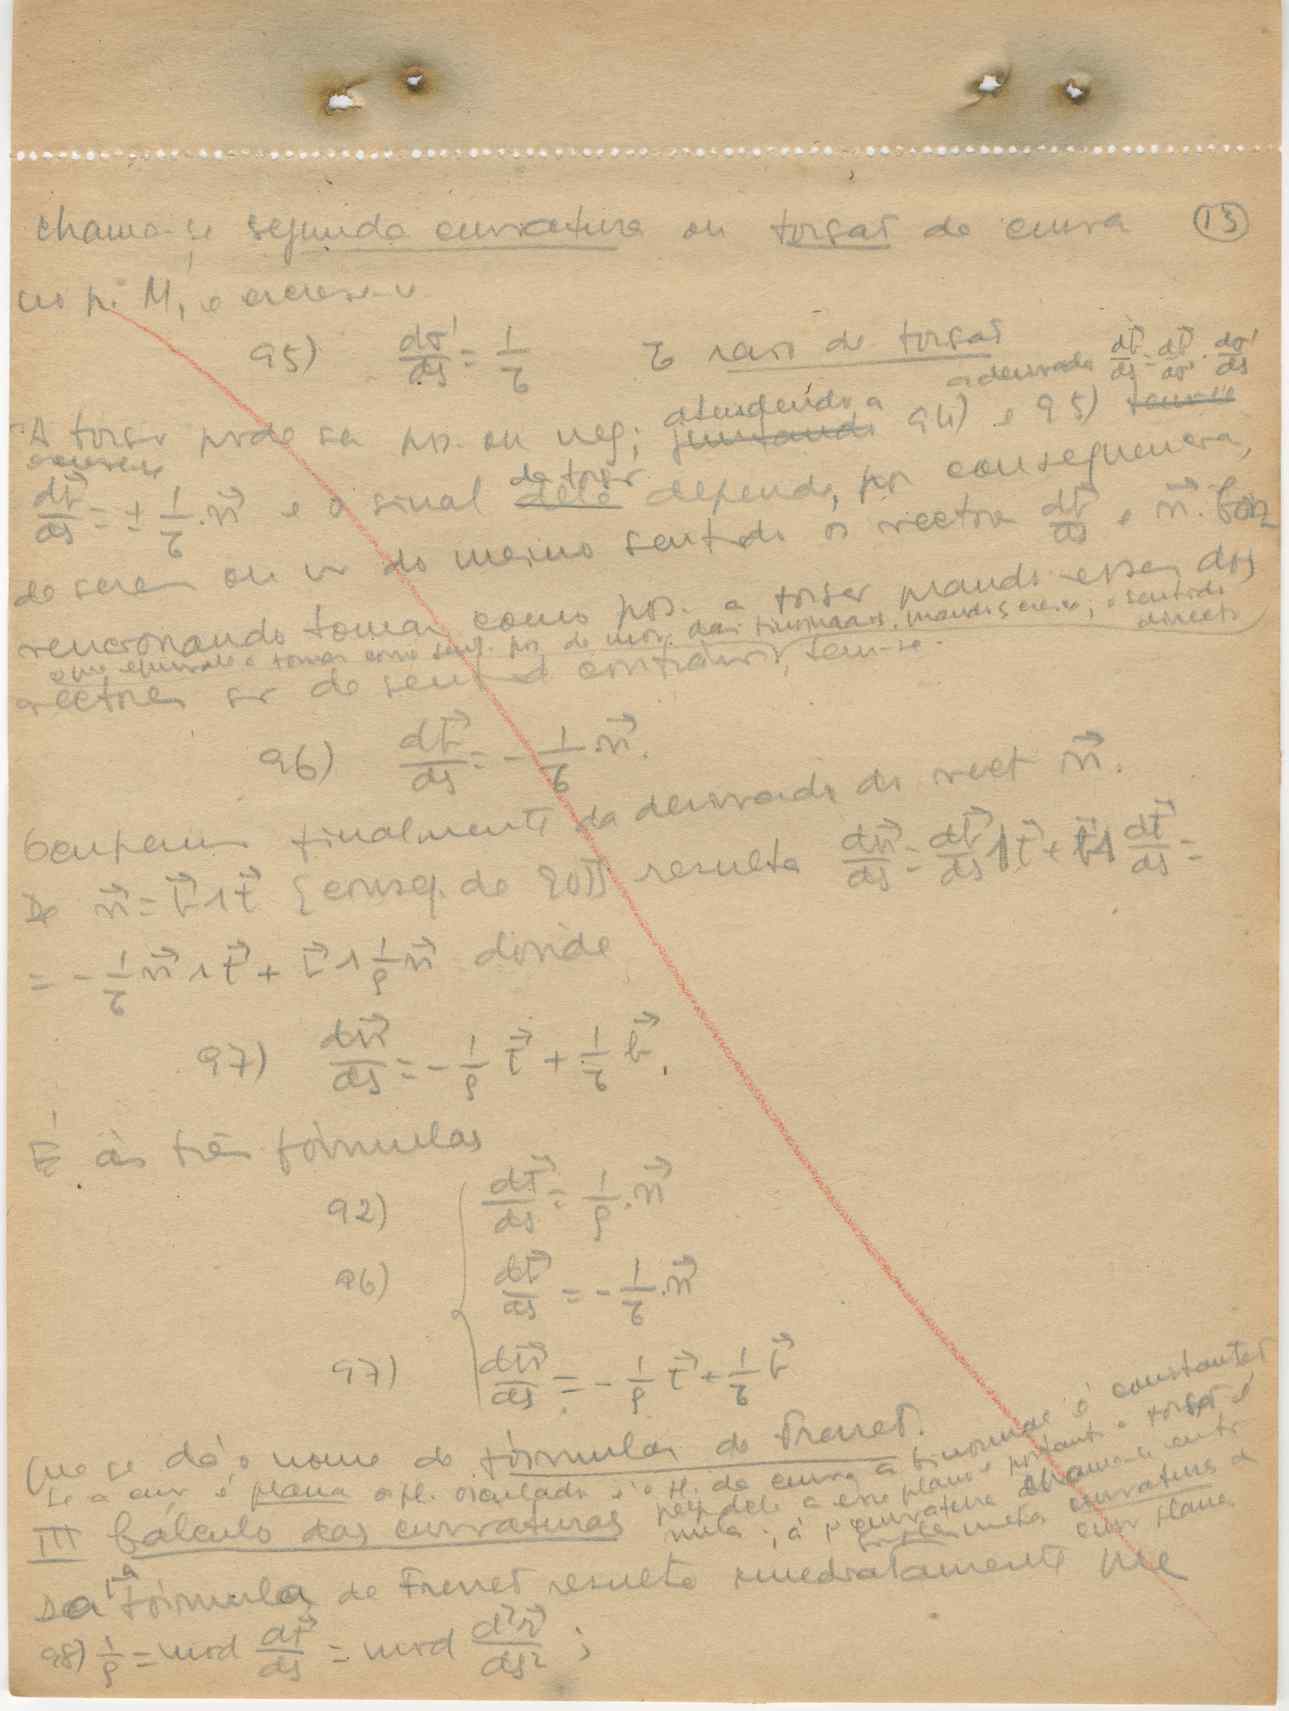 chama-se segunda curvatura ou torsão da curva (15)
no p. M, e escreve-se
95) dσ'/ds = 1/τ τ raio de torsão
a derivada db⃗/ds = db⃗/dσ' · dσ'/ds
A torsão pode ser pos. ou neg; juntando atendendo a 94) e 95)
escreve-se
db⃗/ds = ± 1/τ · n⃗ e o sinal dela da torsão depende, por consequencia,
de serem ou não do mesmo sentido os vectores db⃗/ds e n⃗. Con
vencionando tomar como pos. a torsão quando esses dois
o que equivale a tomar como sent. pos. de
directo
vectores são de sentidos contrários, tem-se
96) db⃗/ds = - 1/τ · n⃗.
Ocupemo-nos finalmente da derivada do vect n⃗.
De n⃗ = b⃗ ∧ t⃗ [conseq. de 90)] resulta dn⃗/ds = db⃗/ds ∧ t⃗ + b⃗ ∧ dt⃗/ds =
= - 1/τ n⃗ ∧ t⃗ + b⃗ ∧ 1/ρ n⃗ donde
97) dn⃗/ds = - 1/ρ t⃗ + 1/τ b⃗.
É às três fórmulas
92) dt⃗/ds = 1/ρ · n⃗
96) db⃗/ds = - 1/τ · n⃗
97) dn⃗/ds = - 1/ρ t⃗ + 1/τ b⃗
que se dá o nome de fórmulas de Frenet.
Se a curva é plana o pl. osculador é o pl. da curva a binormal é constante
perp. dele a esse plano e portanto a torsão é
nula; à 1ª curvatura chama-se então
simplesmente curvatura da
curva plana
III Cálculo das curvaturas
Da 1ª fórmula de Frenet resulta imediatamente que
98) 1/ρ = mod dt⃗/ds = mod d²r⃗/ds² ;